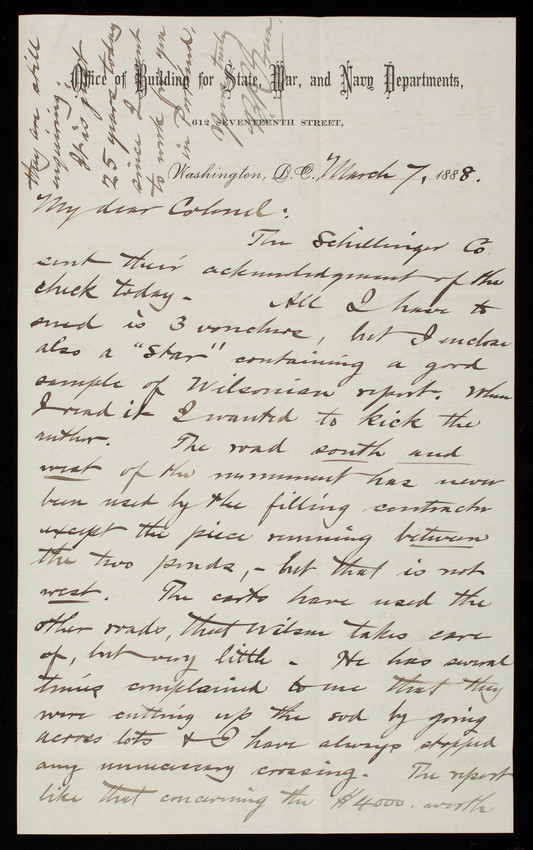 Office of Building for State, War, and Navy Departments,
612 SEVENTEENTH STREET,
Washington, D.C., March 7, 1888.
My dear Colonel:
The Schillinger Co
sent their acknowledgment of the
check today - All I have to
send is 3 vouchers, but I enclose
also a "Star" containing a good
sample of Wilsonian report. When
I read it I wanted to kick the
author. The road south and
west of the monument has never
been used by the filling contractor
except the piece running between
the two ponds, - but that is not
west. The carts have used the
other roads, that Wilson takes care
of, but very little - He has several
times complained to me that they
were cutting up the sod by going
across lots & I have always stopped
any unnecessary crossing. The report
like that concerning the $4000. worth
they are still
inquiring.
It is just
25 years today
since I went
to work for you
in Portland.
Yours truly